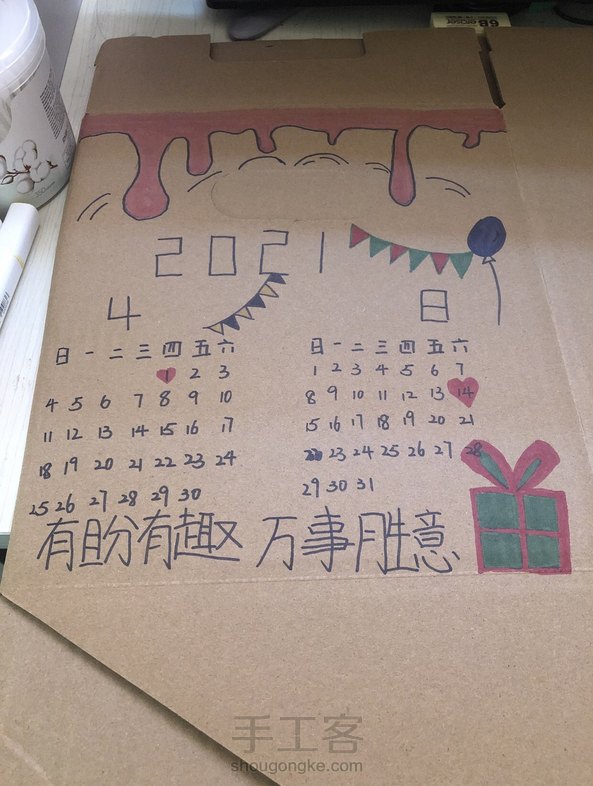 6B eraser
2021
4
日 一 二 三 四 五 六
1 2 3
4 5 6 7 8 9 10
11 12 13 14 15 16 17
18 19 20 21 22 23 24
25 26 27 28 29 30
8
日 一 二 三 四 五 六
1 2 3 4 5 6 7
8 9 10 11 12 13 14
15 16 17 18 19 20 21
22 23 24 25 26 27 28
29 30 31
有盼有趣 万事胜意
手工客
shougongke.com